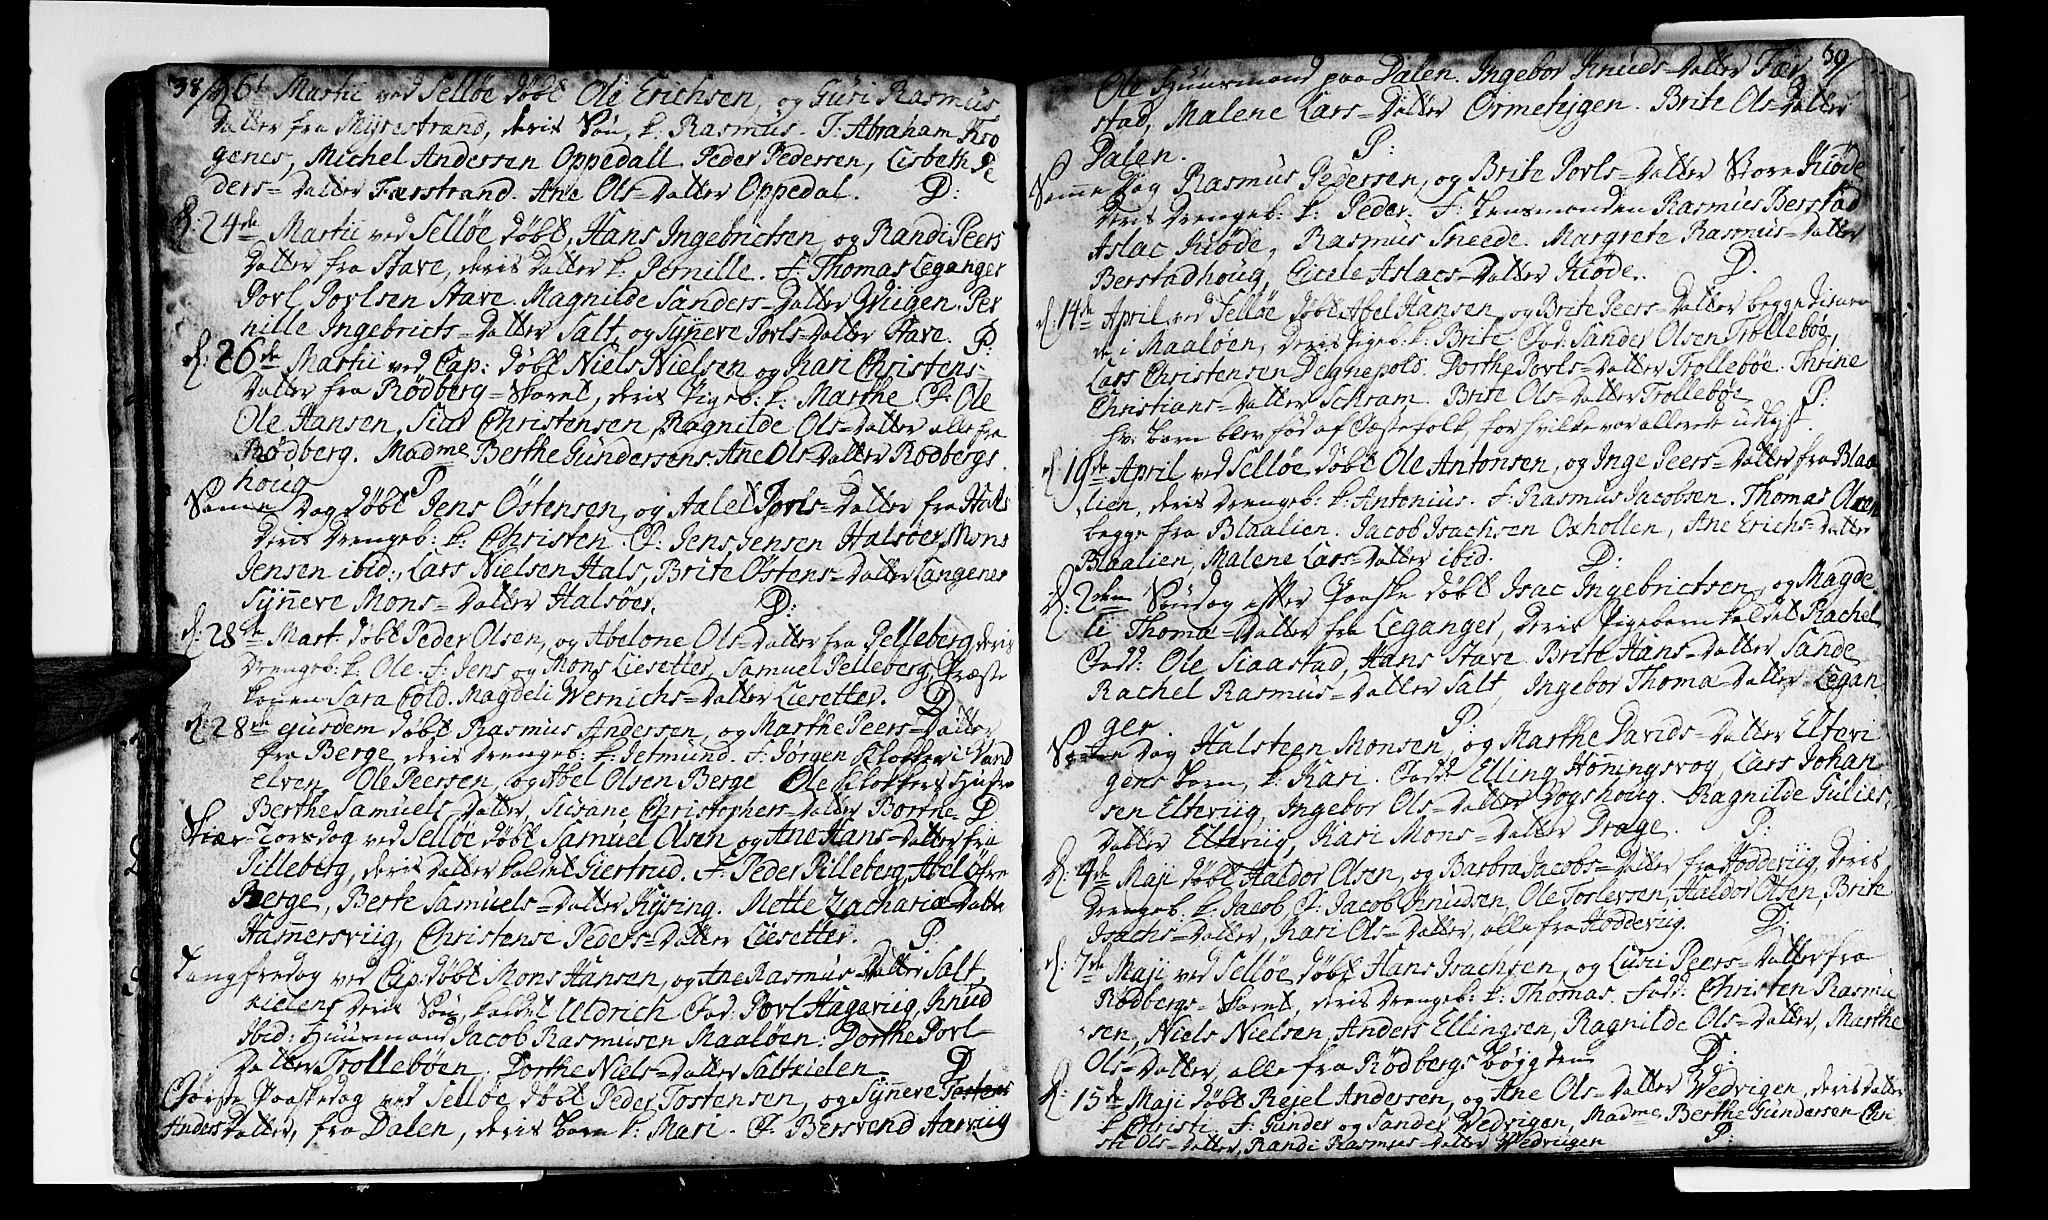 38/
d 6t Martii ved Selløe døbt Ole Erichsen, og Guri Rasmus
Datter fra Myrestrand, deris Søn, k. Rasmus. T: Abraham Kro
genes, Michel Andersen Oppedall Peder Pedersen, Lisbeth Pe
ders=Datter Færstrand. Ane Ols=Datter Oppedal. D:
d 24de Martii ved Selløe døbt, Hans Ingebrictsen, og Randi Peers
Datter fra Stave, deris Datter k. Pernille. F. Thomas Leganger
Povl Povlsen Stave. Magnilde Sanders=Datter Wiigen. Per
nille Ingebricts=Datter Salt, og Synneve Povls=Datter Stave. P:
d: 26de Martii ved Cap: døbt Niels Nielsen og Kari Christens
Datter fra Rødberg=Skaret, deris Pigeb: k. Marthe F. Ole
Ole Hansen, Siur Christensen, Ragnilde Ols=Datter alle fra
Rødberg. Madme Berthe Gundersens. Ane Ols=Datter Rødbergs
houg P.
Samme Dag døbt Jens Østensen, og Aalet Povls=Datter fra Hals
Deris Drengeb: k. Christen. F. Jens Jensen Halsøer, Mons
Jensen ibid:, Lars Nielsen Hals, Brite Østens=Datter Langenes
Synneve Mons=Datter Halsøer. D:
d: 28de Mart. døbt Peder Olsen, og Abelone Ols=Datter fra Pelleberg, deris
Drengeb: k. Ole. F. Jens og Mons Liesetter, Samuel Pelleberg, Præste
konen Sara Cold. Magdeli Wernichs=Datter Liesetter. D
d: 28de ejusdem døbt Rasmus Andersen, og Marthe Peers=Datter
fra Berge, deris Drengeb: k. Jetmund. F. Jørgen Klokker i Vand
elven, Ole Peersen, og Abel Olsen Berge Ole Klokkers Hustro
Berthe Samuels=Datter, Susane Christophers=Datter Borthe D.
Skær=Torsdag ved Selløe døbt Samuel Olsen og Ane Hans=Datter fra
Pilleberg, deris Datter kaldet Giertrud. F. Peder Pilleberg, Abel Øfre
Berge, Berte Samuels=Datter Rysing. Mette Zachariæ Datter
Hamersviig, Christense Peders=Datter Liesetter. P.
Langfredag ved Cap. døbt Mons Hansen, og Ane Rasmus=Datter Salt
kielens deris Søn, kaldet Uldrich Fad: Povl Hageviig, Knud
Ibid: Huusmand Jacob Rasmusen Maaløen: Dorthe Povl=
Datter Trollebøen. Dorthe Niels=Datter Saltkielen D
Første Paaskedag ved Selløe døbt Peder Tostensen, og Synneve Tostens
Anders Datter, fra Dalen, deris Barn k. Mari. F. Bersvend Aarviig
39/
Ole Huusmand paa Dalen. Ingebor Knuds=Datter Fær
stad, Malene Lars=Datter Ormehigen. Brite Ols=Datter
Dalen. P:
Samme Dag Rasmus Pedersen, og Brite Povls=Datter Store Kiøde
deris Drengeb: k. Peder. F. Lensmanden Rasmus Berstad
Aslac Kiøde, Rasmus Sneede. Margrete Rasmus=Datter
Berstadhoug, Cicele Aslacs=Datter Kiøde. D.
d: 14de April ved Selløe døbt Abel Hansen, og Brite Peers=Datter begge
de i Maaløen, deris Pigeb: k. Brite Fad: Sander Olsen Trollebøe,
Lars Christensen Degnepold. Dorthe Povls=Datter Trollebøe. Thrine
Christians=Datter Schram. Brite Ols=Datter Trollebøe P:
hv. Barn blev fød af Ægtefolk, for hvilke var allerede udlyst.
d: 19de April ved Selløe døbt Ole Antonsen, og Inge Peers=Datter fra Blaa
lien, deris Drengeb: k. Antonius. F. Rasmus Jacobsen. Thomas Olsen
begge fra Blaalien. Jacob Isachsen Oxhollen, Ane Erichs=Datter
Blaalien, Malene Lars=Datter ibid. D:
d. 2den Søndag efter Paaske døbt Isac Ingebrictsen, og Magde
li Thoma=Datter fra Leganger, deris Pigebarn kaldet Rachel
Fadd: Ole Siaastad, Hans Stave. Brite Hans=Datter Sande
Rachel Rasmus=Datter Salt, Ingebor Thoma=Datter Legan
ger P:
Samme Dag Halsteen Monsen, og Marthe Davids=Datter Eltevi
gens barn, k. Kari. Fadd: Elling Honingsvog, Lars Johan
sen Elteviig, Ingebor Ols=Datter Dogshoug. Ragnilde Gulies
Datter Elteviig, Kari Mons=Datter Drage. P:
d: 4de Maji døbt Haldor Olsen, og Barbra Jacobs=Datter fra Hoddeviig, Deris
Drengeb. k. Jacob. F. Jacob Knudsen, Ole Torlevsen, Haldor Olsen, Brite
Isachs=Datter, Kari Ols=Datter, alle fra Hoddeviig. D.
d. 7de Maji ved Selløe døbt Hans Isachsen, og Lusi Peers=Datter fra
Rødbergs=Skaret, deris Drengeb: k. Thomas. Fadd: Christen Rasmu
sen, Niels Nielsen, Anders Ellingsen, Ragnilde Ols=Datter, Marthe
Ols=Datter, alle fra Rødbergs bøygden D:
d: 15de Maji døbt Rejel Andersen, og Ane Ols=Datter Wedvigen, deris Datter
k Christi. F. Gunder og Sander Wedvigen, Madme Berthe Gundersen Chri
sti Ols=Datter, Randi Rasmus=Datter Wedviigen P: